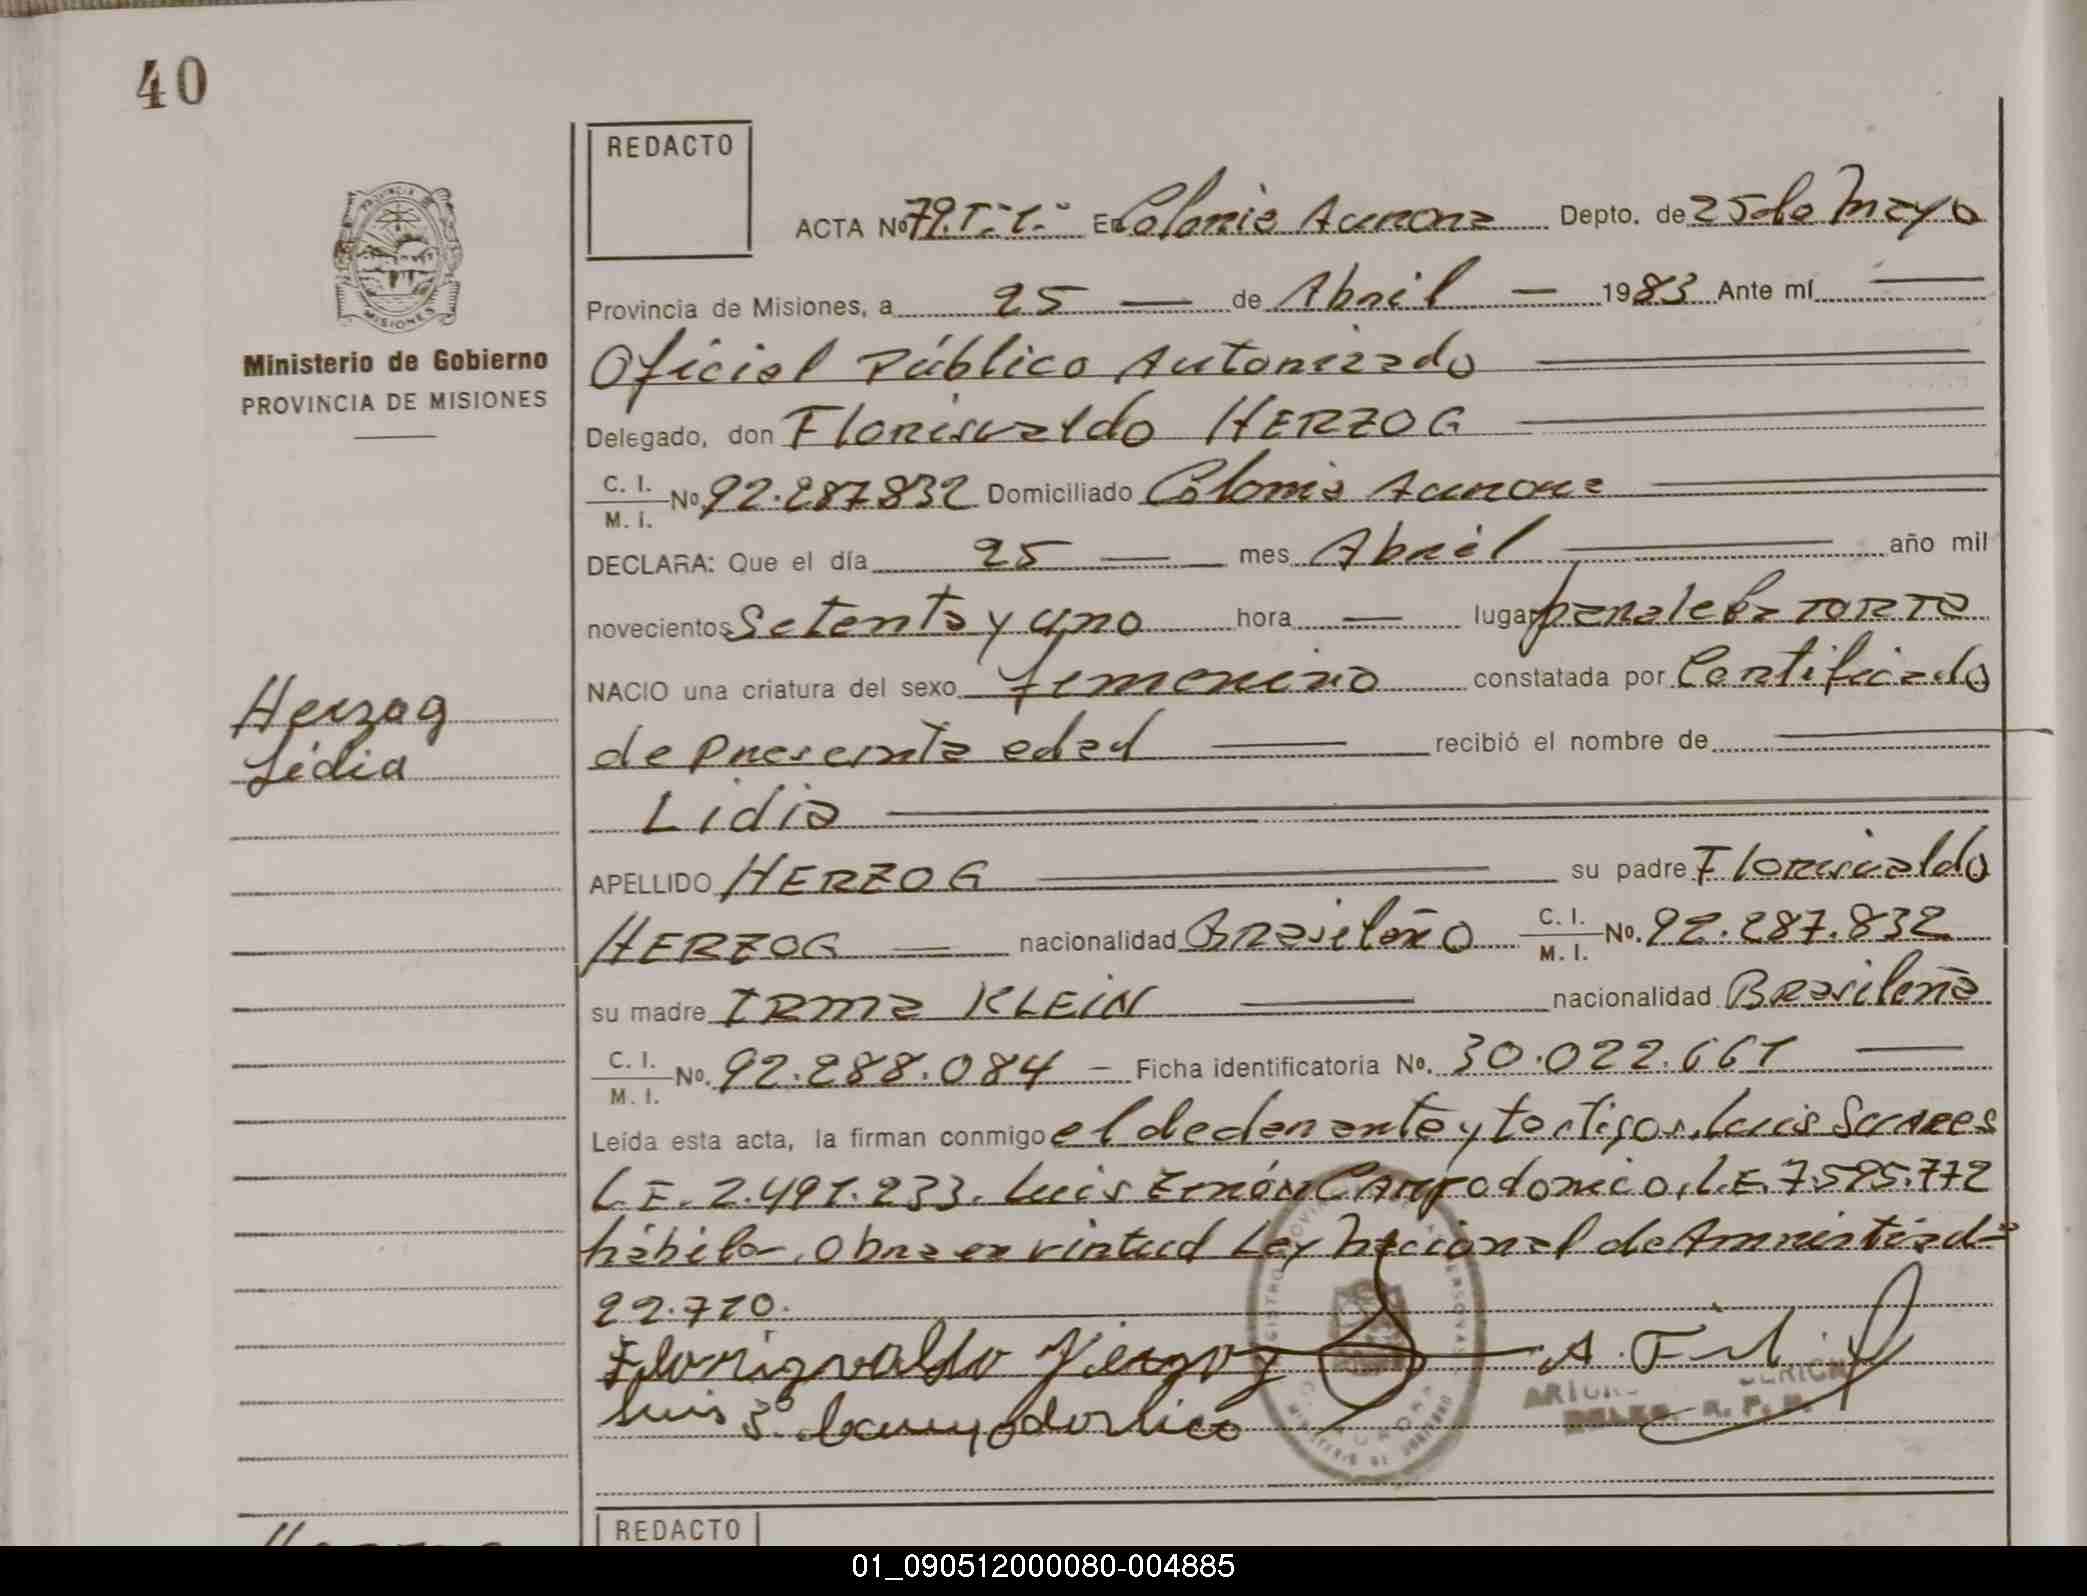 40
REDACTO
ACTA Nº 79.T.1º En Colonia Aurora Depto. de 25 de Mayo
Provincia de Misiones, a 25 — de Abril — 1983 Ante mí —
Oficial Público Autorizado
Delegado, don Florisvaldo HERZOG
C. I. / M. I. Nº 92.287832 Domiciliado Colonia Aurora
DECLARA: Que el día 25 — mes Abril — año mil
novecientos Setenta y uno hora — lugar
NACIO una criatura del sexo femenino constatada por Certificado
de presunta edad — recibió el nombre de —
Lidia
APELLIDO HERZOG — su padre Florisvaldo
HERZOG — nacionalidad Brasileño C. I. / M. I. Nº. 92.287.832
su madre IRMA KLEIN — nacionalidad Brasileña
C. I. / M. I. Nº. 92.288.084 – Ficha identificatoria Nº. 30.022.661 —
Leída esta acta, la firman conmigo el declarante y testigos, Luis Suarez
L.E. 2.491.233. Luis Campodonico, L.E. 7.595.772
hábiles. Obra en virtud Ley Nacional de Amnistia
22.710.
Florisvaldo Herzog
Luis Campodonico
Ministerio de Gobierno
PROVINCIA DE MISIONES
Herzog
Lidia
PROVINCIA
MISIONES
REDACTO
01_090512000080-004885